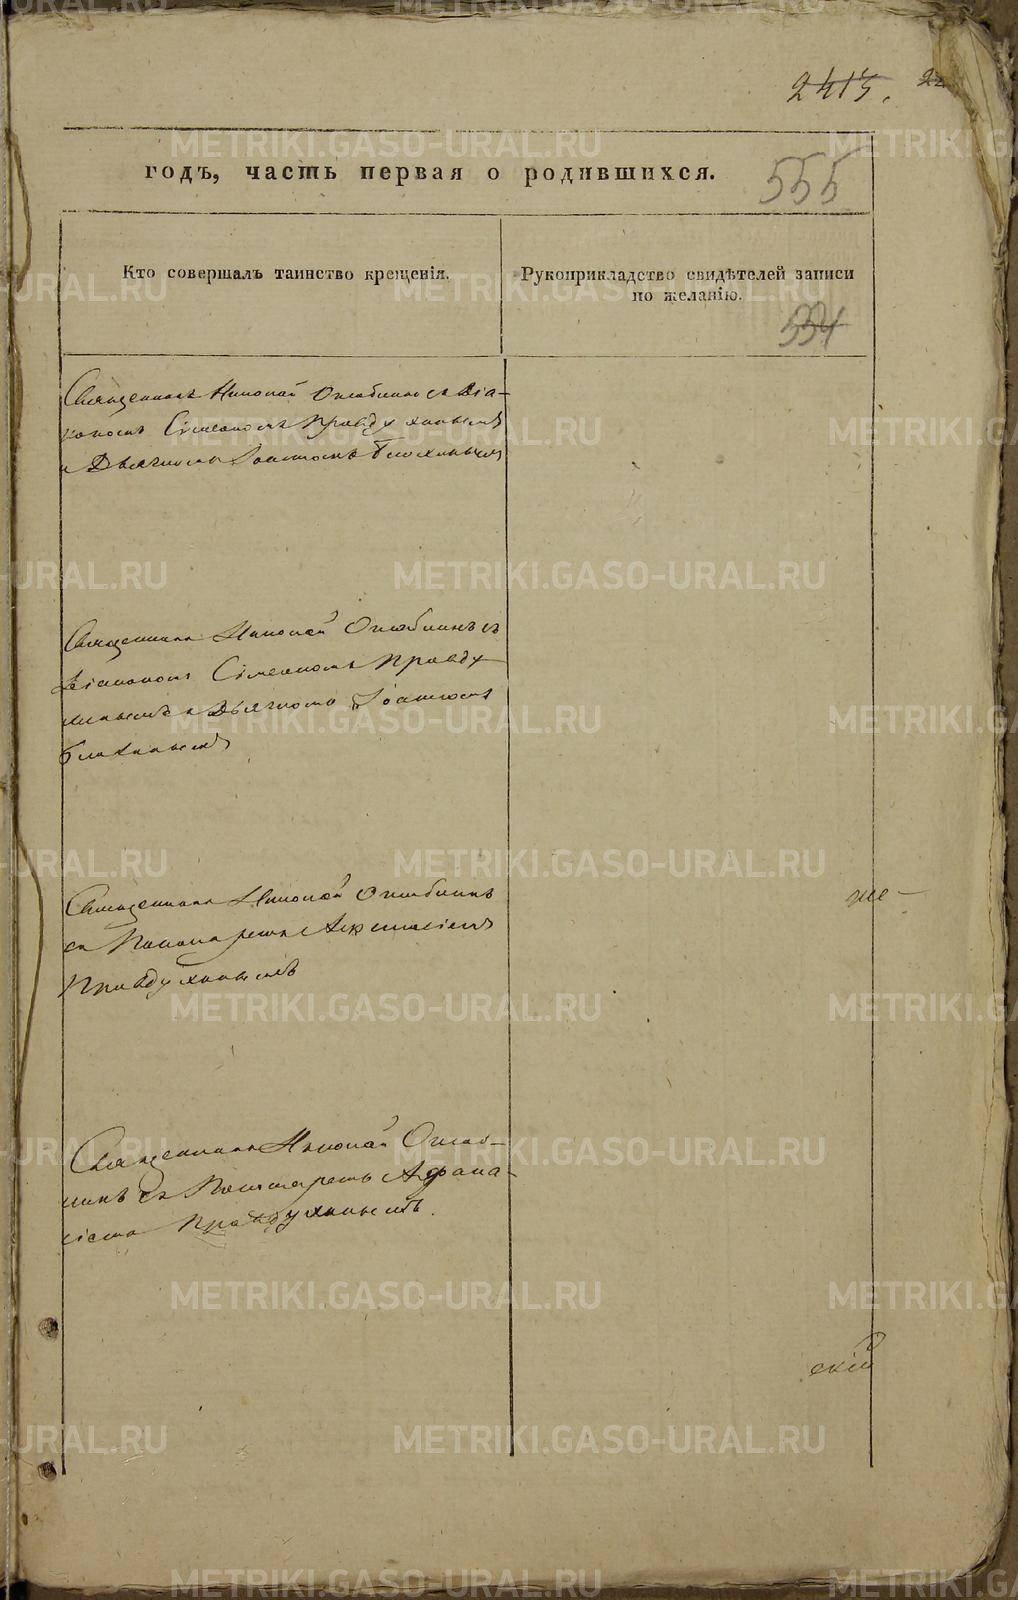 2415.
годъ, часть первая о родившихся.
555
Кто совершалъ таинство крещенія.
Рукоприкладство свидѣтелей записи
по желанію.
554
Священникъ Николай Оглоблинъ съ Діа-
кономъ Сімеономъ Правдухинымъ
и Дьячкомъ Іоанномъ Блохинымъ
Священникъ Николай Оглоблинъ съ
Діакономъ Сімеономъ Правду
хинымъ и Дьячкомъ Іоанномъ
Блохинымъ
Священникъ Николай Оглоблинъ
съ Пономаремъ Афанасіемъ
Правдухинымъ
же
Священникъ Николай Оглоб-
линъ съ Пономаремъ Афана-
сіемъ Правдухинымъ.
скій
METRIKI.GASO-URAL.RU